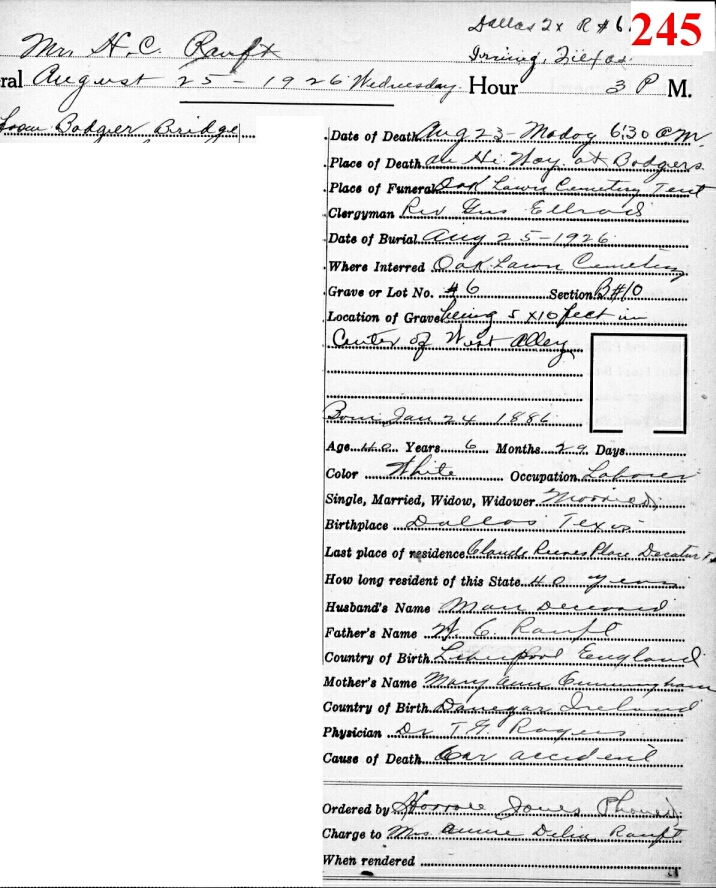 Dallas Tx R#6.
245
Mrs H.C. Ranft
Irving, Texas
ral August 25-1926 Wednesday Hour 3 P M.
Bodgier Bridge
Date of Death Aug 23- Monday 6:30 a.m.
Place of Death on Hi Way at Bodgers
Place of Funeral Oak Lawn Cemetery Tent
Clergyman Rev Gus Ellrod
Date of Burial Aug 25-1926
Where Interred Oak Lawn Cemetery
Grave or Lot No. #6 Section B#10
Location of Grave being 5 x10 feet in
Center of West Alley
Born Jan 24 1886
Age 40 Years 6 Months 29 Days
Color White Occupation Laborer
Single, Married, Widow, Widower Married
Birthplace Dallas Texas
Last place of residence Claude Reeves Place Decatur
How long resident of this State 40 years
Husband's Name
Father's Name H. C. Ranft
Country of Birth Liverpool England
Mother's Name Mary Ann Cunningham
Country of Birth Donegar Ireland
Physician Dr T.G. Rogers
Cause of Death Car accident
Ordered by Jones Phoned
Charge to Mrs Annie Delia Ranft
When rendered